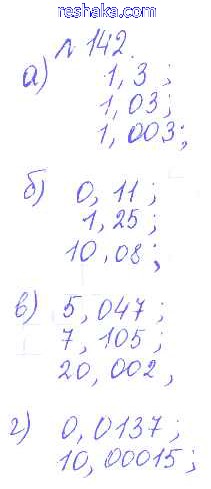 reshaka.com
№ 142.
а) 1,3;
1,03;
1,003;
б) 0,11;
1,25;
10,08;
в) 5,047;
7,105;
20,002,
г) 0,0137;
10,00015;